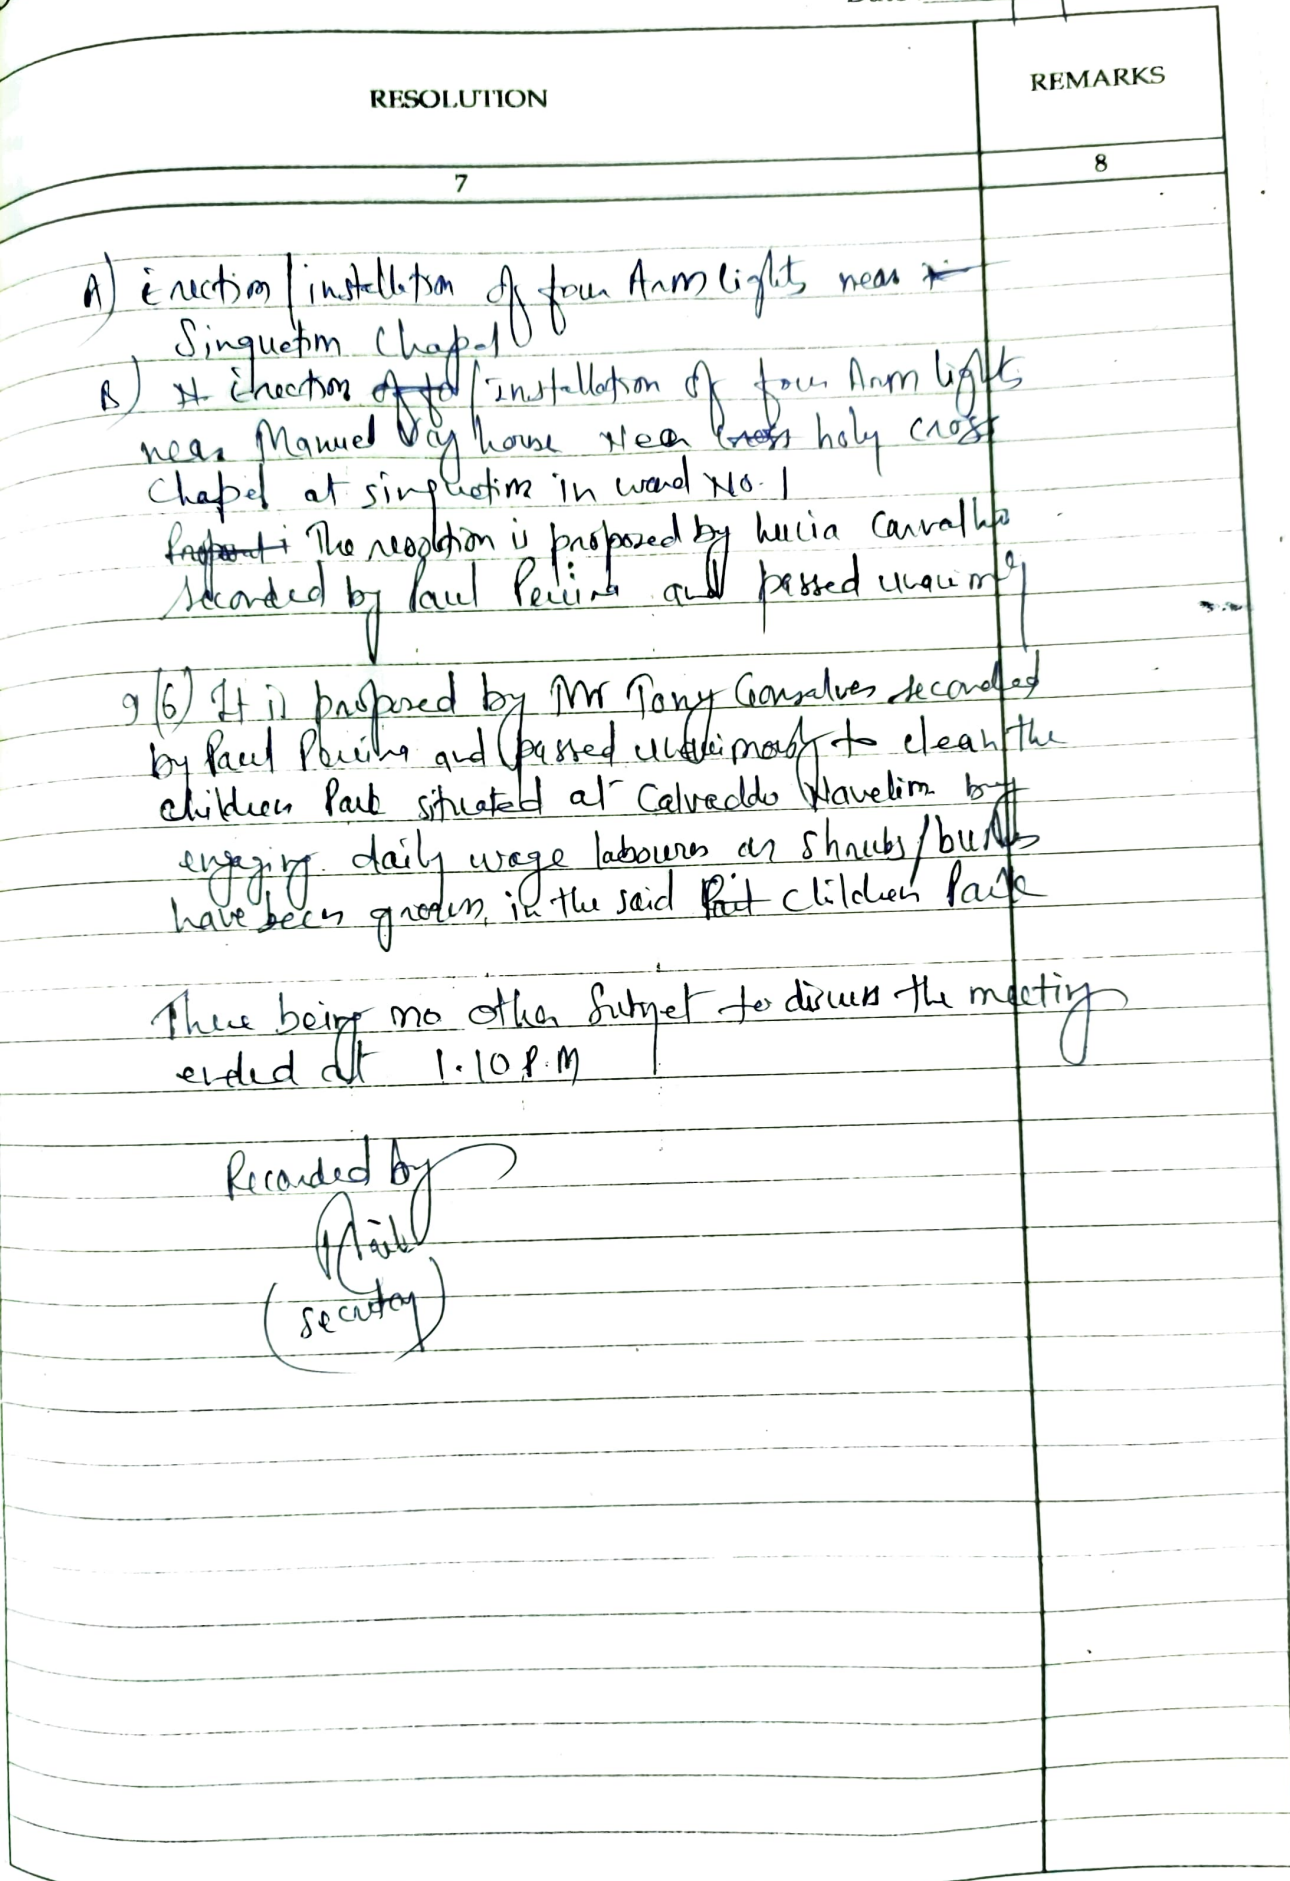 RESOLUTION
REMARKS
7
8
A) Erection/installation of four Arm lights near
Singuetim Chapel
B) Erection /Installation of four Arm lights
near Manuel Vaz house Near holy cross
Chapel at singuetim in ward No. 1
The resolution is proposed by Lucia Carvalho
Seconded by Paul Pereira and passed
9(6) It is proposed by Mr Tony Gonsalves seconded
by Paul Pereira and passed unanimously to clean the
children Park situated at Calvaddo Navelim by
engaging daily wage labourers as Shrubs/bushes
have been grown in the said children Park
There being no other Subject to discuss the meeting
ended at 1.10 P.M
Recorded by
(Secretary)